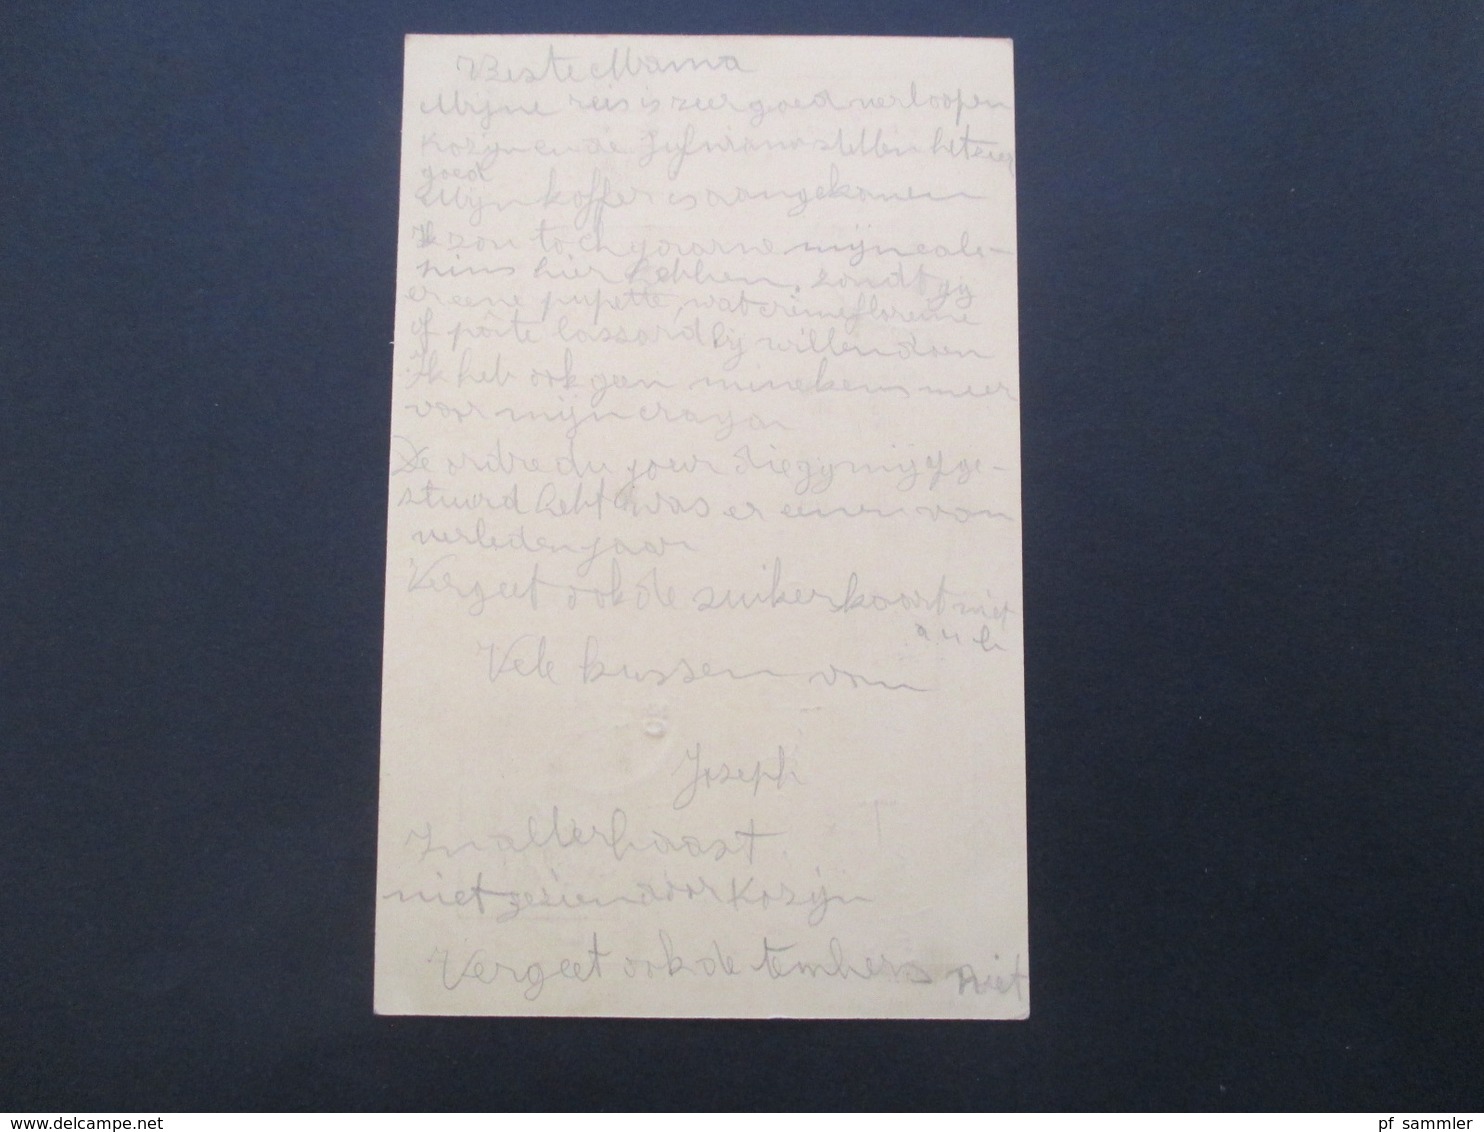 Beste Mama
Mijne reis is zeer goed verloopen
Kozijn en de Jufvrouw stellen het zeer
goed
Mijn koffer is aangekomen
Ik zou toch gaarne mijn cale-
pins hier hebben. zondt gij
er eene pupette, wat crème floreine
of pâte lassard bij willen doen
Ik heb ook geen minekens meer
voor mijn crayon
De ordre du jour die gij mij ge-
stuurd hebt was er eenen van
verleden jaar
Vergeet ook de zuikerkaart niet
a u b
Vele kussen van
Joseph
In allerhaast
niet gezien door Kozijn
Vergeet ook de tembers niet
delcampe.net
pf_sammler